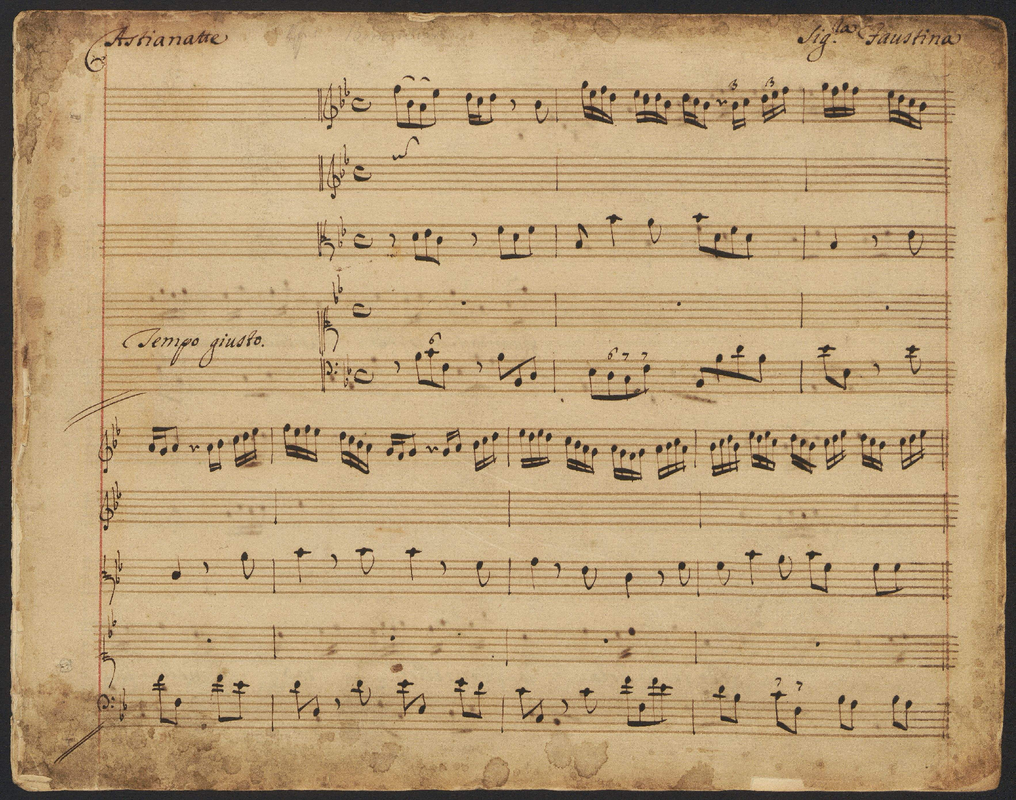 Astianatte
Sig.la Faustina
3 3
6
Tempo giusto.
6 7 7
7 7